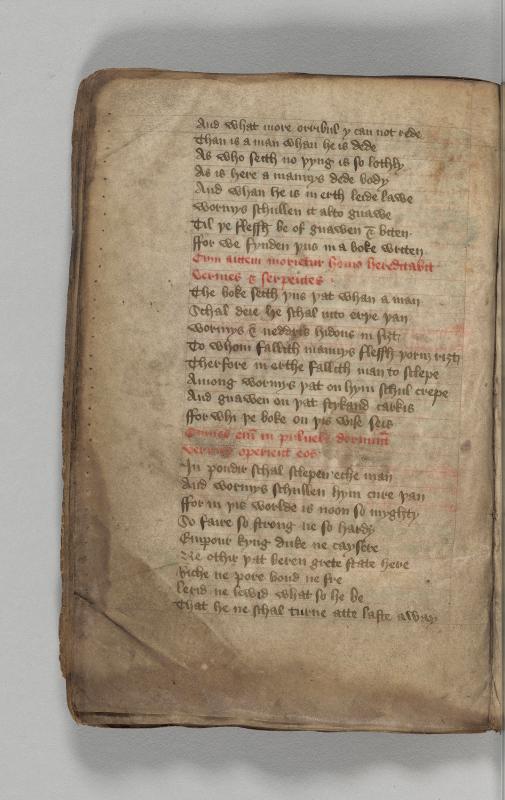 And what more orribul y can not rede
Than is a man whan he is dede
As who seith no yyng is so lothly
As is here a mannys dede body
And whan he is in erth leide lawe
wormys schullen it alto gnawe
Til ye flessh be of gnawen & biten
ffor we fynden yus in a boke writen
Cum autem morietur homo hereditabit
vermes & serpentes
The boke seith yus yat whan a man
Schal deie he schal into erye yan
wormys & neddris hidous in siȝt
To whom fallith mannys flessh yoruȝ riȝt
Therfore in erthe fallith man to slepe
Among wormys yat on hym schul crepe
And gnawen on yat stynkand carkis
ffor whi ye boke on yis wise seis
em in pulvere dormiunt
operient eos
In poudir schal slepen eche man
And wormys schullen hym cure yan
ffor in yis worlde is noon so myghty
So faire so strong ne so hardy
Empour kyng duke ne caysere
Ne othir yat beren grete state here
Riche ne pore bond ne fre
Lerid ne lewid what so he be
That he ne schal turne atte laste away